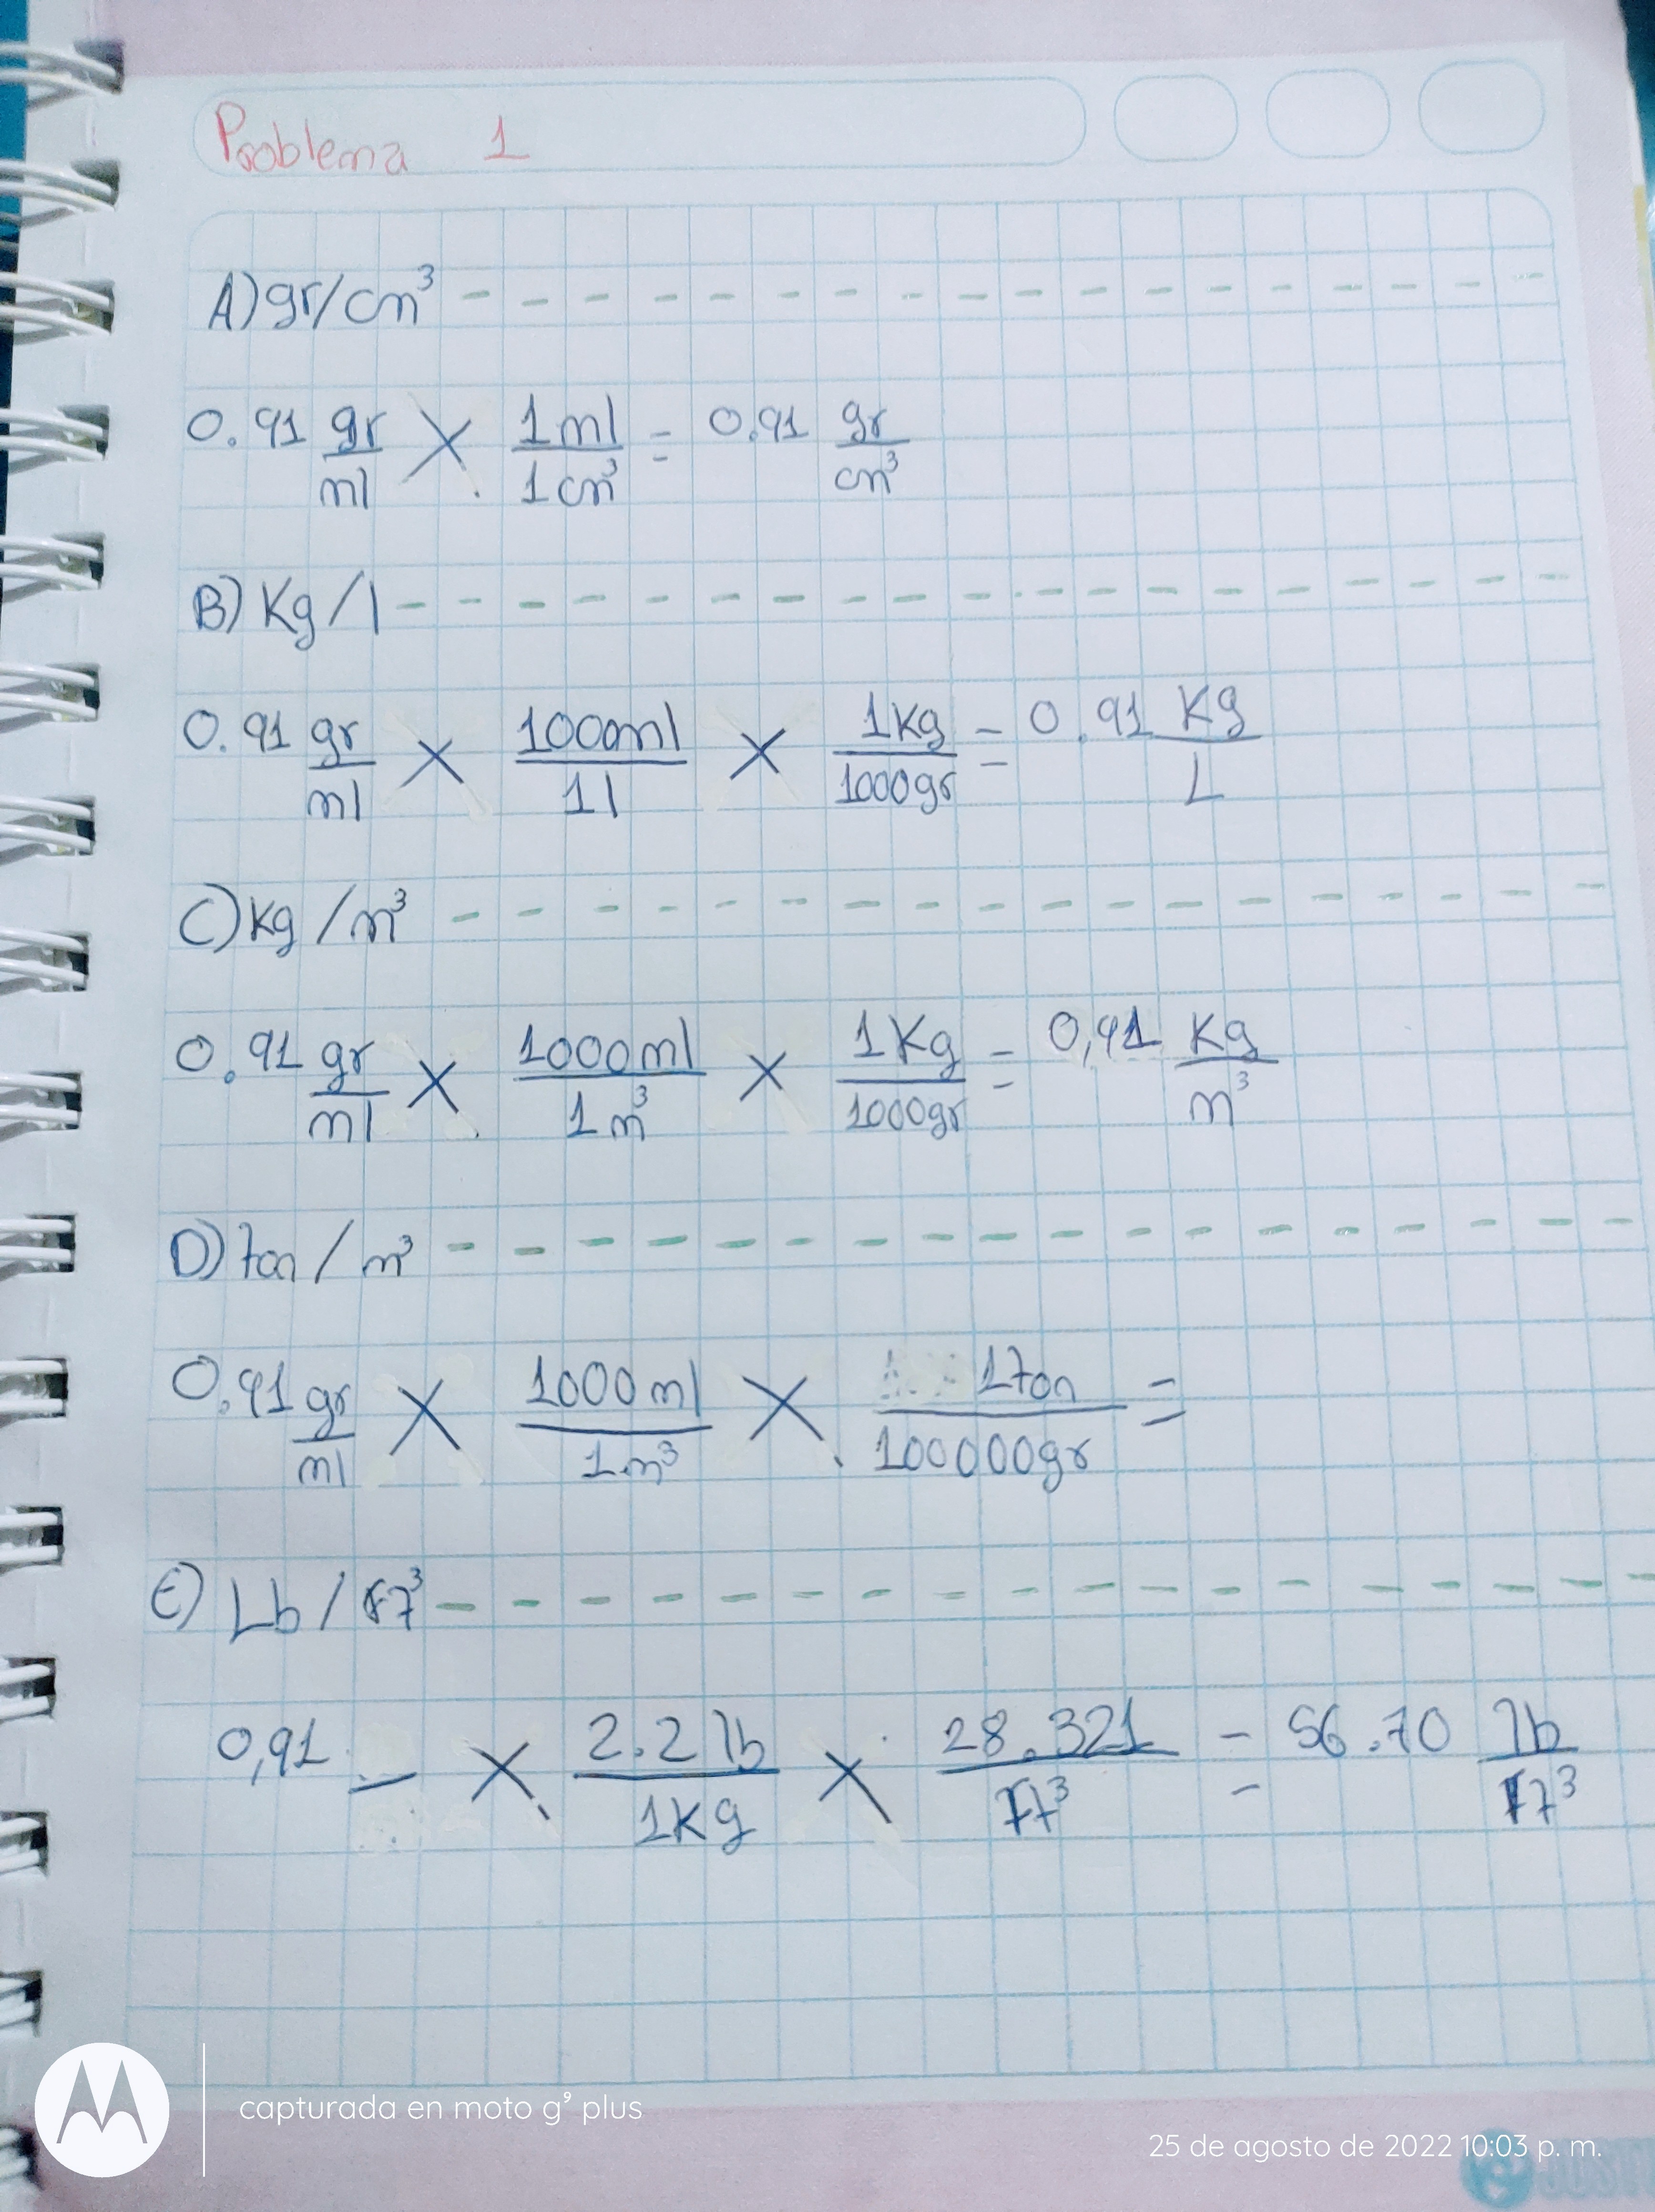 Problema 1
A) gr/cm³
0.91 gr/ml X 1ml/1cm³ = 0.91 gr/cm³
B) Kg/l
0.91 gr/ml X 1000ml/1l X 1Kg/1000gr = 0.91 Kg/L
C) Kg/m³
0.91 gr/ml X 1000ml/1m³ X 1Kg/1000gr = 0,91 Kg/m³
D) ton/m³
0.91 gr/ml X 1000ml/1m³ X 1ton/100000gr =
E) Lb/ft³
0,91 — X 2.2 lb/1Kg X 28.32l/ft³ = 56.70 lb/ft³
capturada en moto g⁹ plus
25 de agosto de 2022 10:03 p. m.